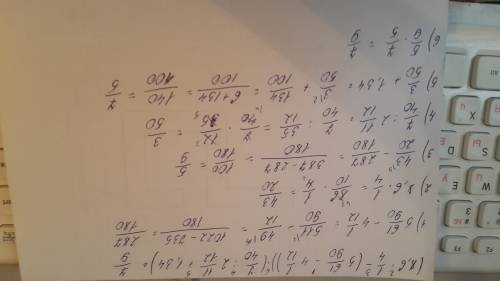 (8,6 · 1/4 - (5 61/90 - 4 1/12)) · (7/40 : 2 11/12 + 1,34) = 7/9
1) 5 61/90 - 4 1/12 = 511/90 - 49/12 = (1022 - 735)/180 = 287/180
2) 8,6 · 1/4 = 86/10 · 1/4 = 43/20
3) 43/20 - 287/180 = (387 - 287)/180 = 100/180 = 5/9
4) 7/40 : 2 11/12 = 7/40 : 35/12 = 7/40 · 12/35 = 3/50
5) 3/50 + 1,34 = 3/50 + 134/100 = (6 + 134)/100 = 140/100 = 7/5
6) 5/9 · 7/5 = 7/9